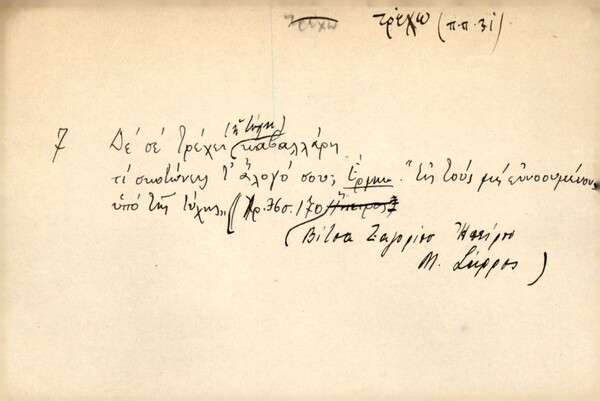 τρέχω τρέχω (π.π. 31)
(ἡ τύχη)
7 Δέ σέ τρέχει καβαλλάρη
τί σκοτώνεις τ' ἄλογό σου; Ἑρμην. "Ἐπί τούς μή εὐνοουμένους
ὑπό τῆς τύχης" (Ἀρ. 36 σ. 170 Ἤπειρος
Βίτσα Ζαγορίου Ἠπείρου
Μ.